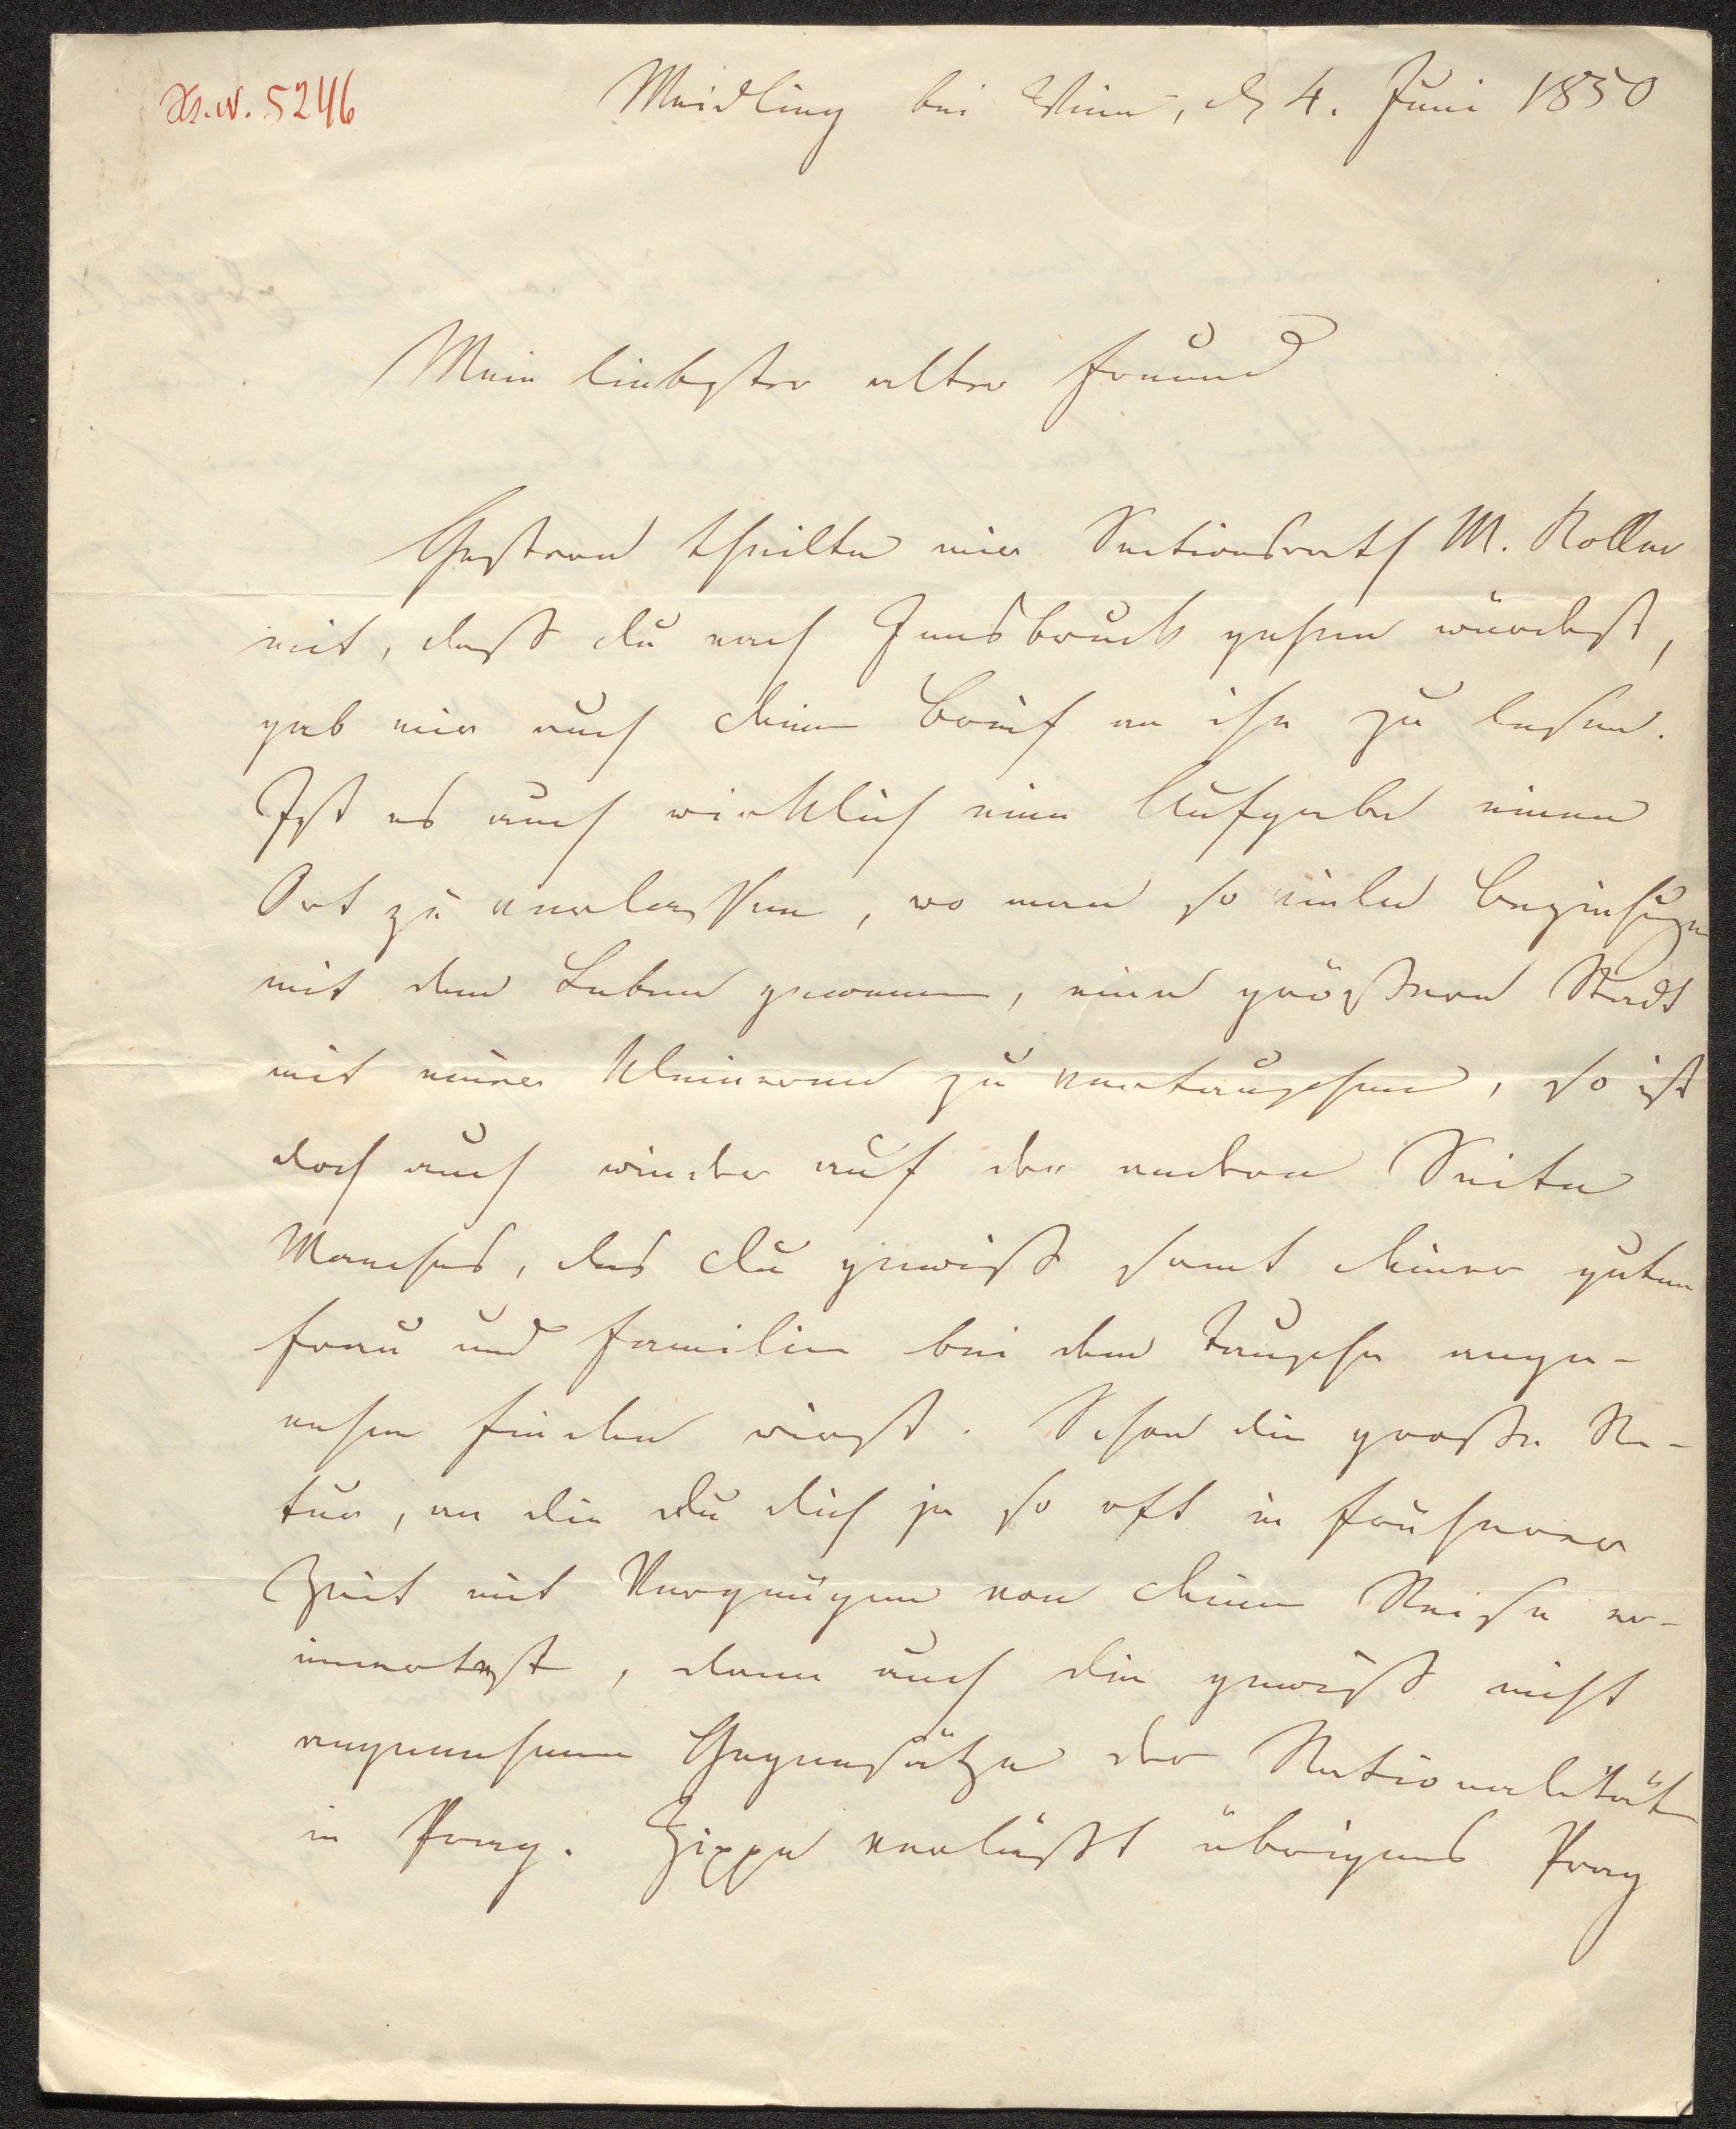 Hs.N. 5246
Meidling bei Wien, d 4. Juni 1850
Mein liebster alter Freund
Gestern theilte mir Sectionsrath M. Koller
mit, daß du nach Innsbruck gehen würdest,
gab mir auch deinen Brief an ihn zu lesen.
Ist es auch wirklich eine Aufgabe einen
Ort zu verlassen, wo man so viele Beziehungen
mit dem Leben gewann, eine größere Stadt
mit einer kleineren zu vertauschen, so ist
doch auch wieder auf der andern Seite
Manches, das du gewiß samt deiner guten
Frau und Familie bei dem Tausche ange-
nehm finden wirst. Schon die große Na-
tur, an die du dich ja so oft in früherer
Zeit mit Vergnügen von deiner Reise er-
innertest, dann auch die gewiß nicht
angenehmen Gegensätze der Nationalität
in Prag. Zippe verläßt übrigens Prag